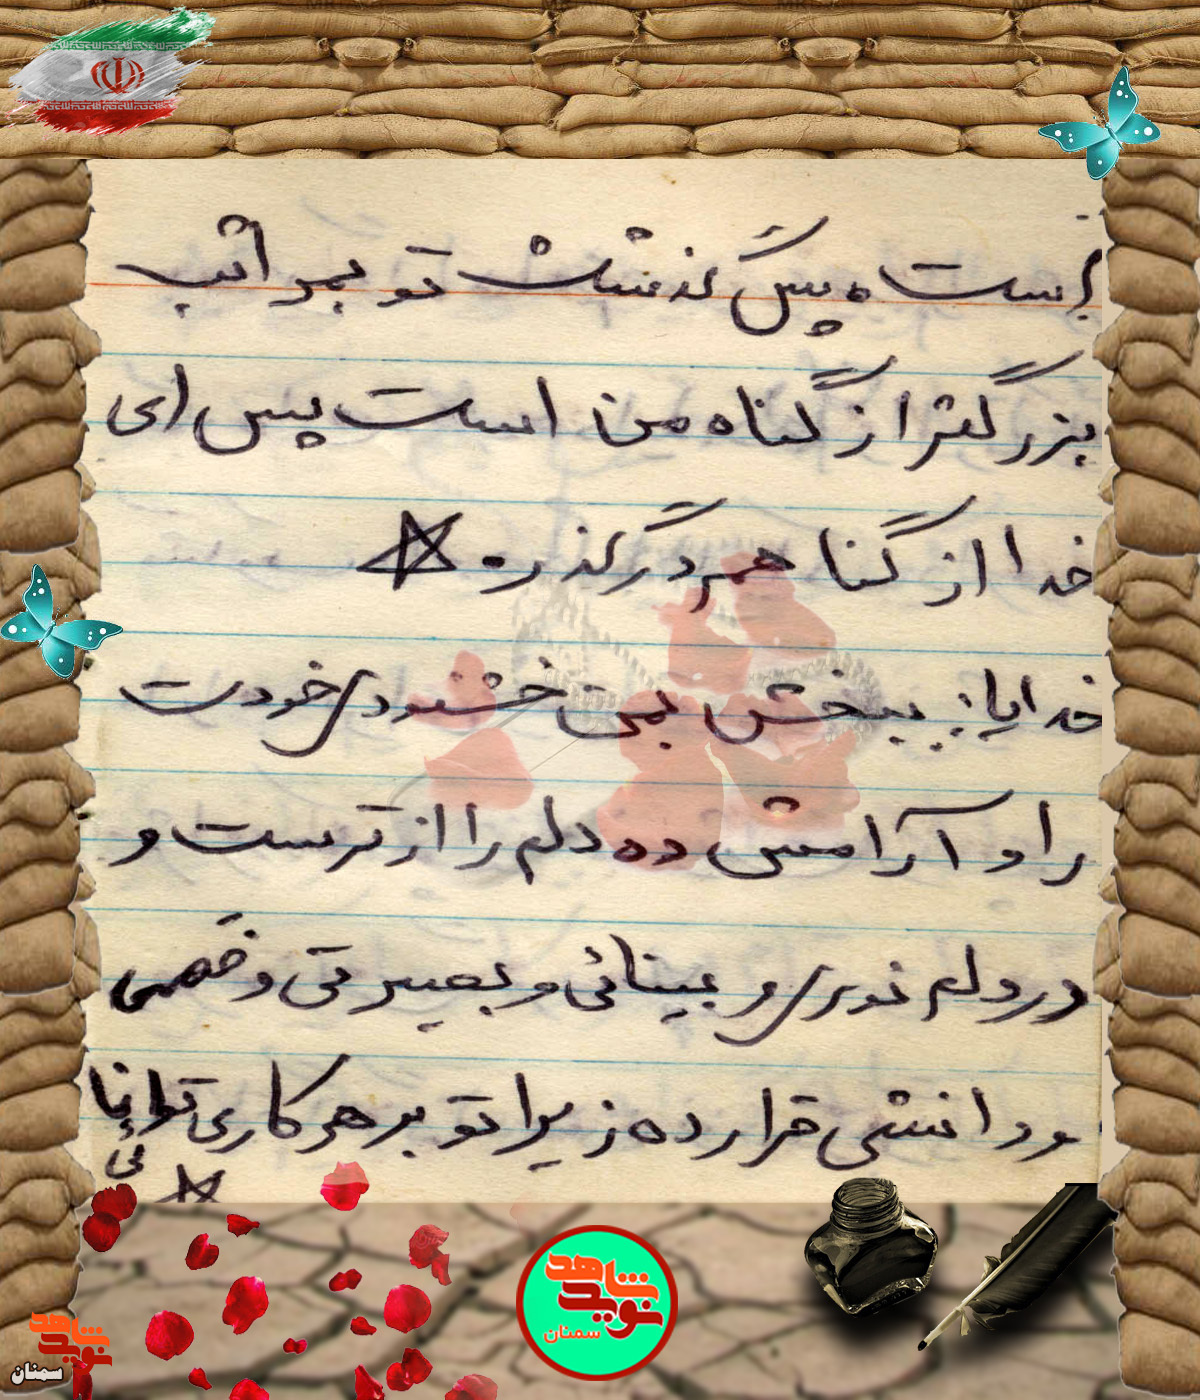 است پس گذشت تو بمراتب
بزرگتر از گناه من است پس ای
خدا از گناهم درگذر.
خدایا: ببخش بمن خشنودی خودت
را و آرامشی ده دلم را از ترست و
در دلم نوری و بینائی و بصیرتی و فهمی
و دانشی قرار ده زیرا تو بر هر کاری توانا
ئی
شاهد
نوید
سمنان
شاهد
نوید
سمنان